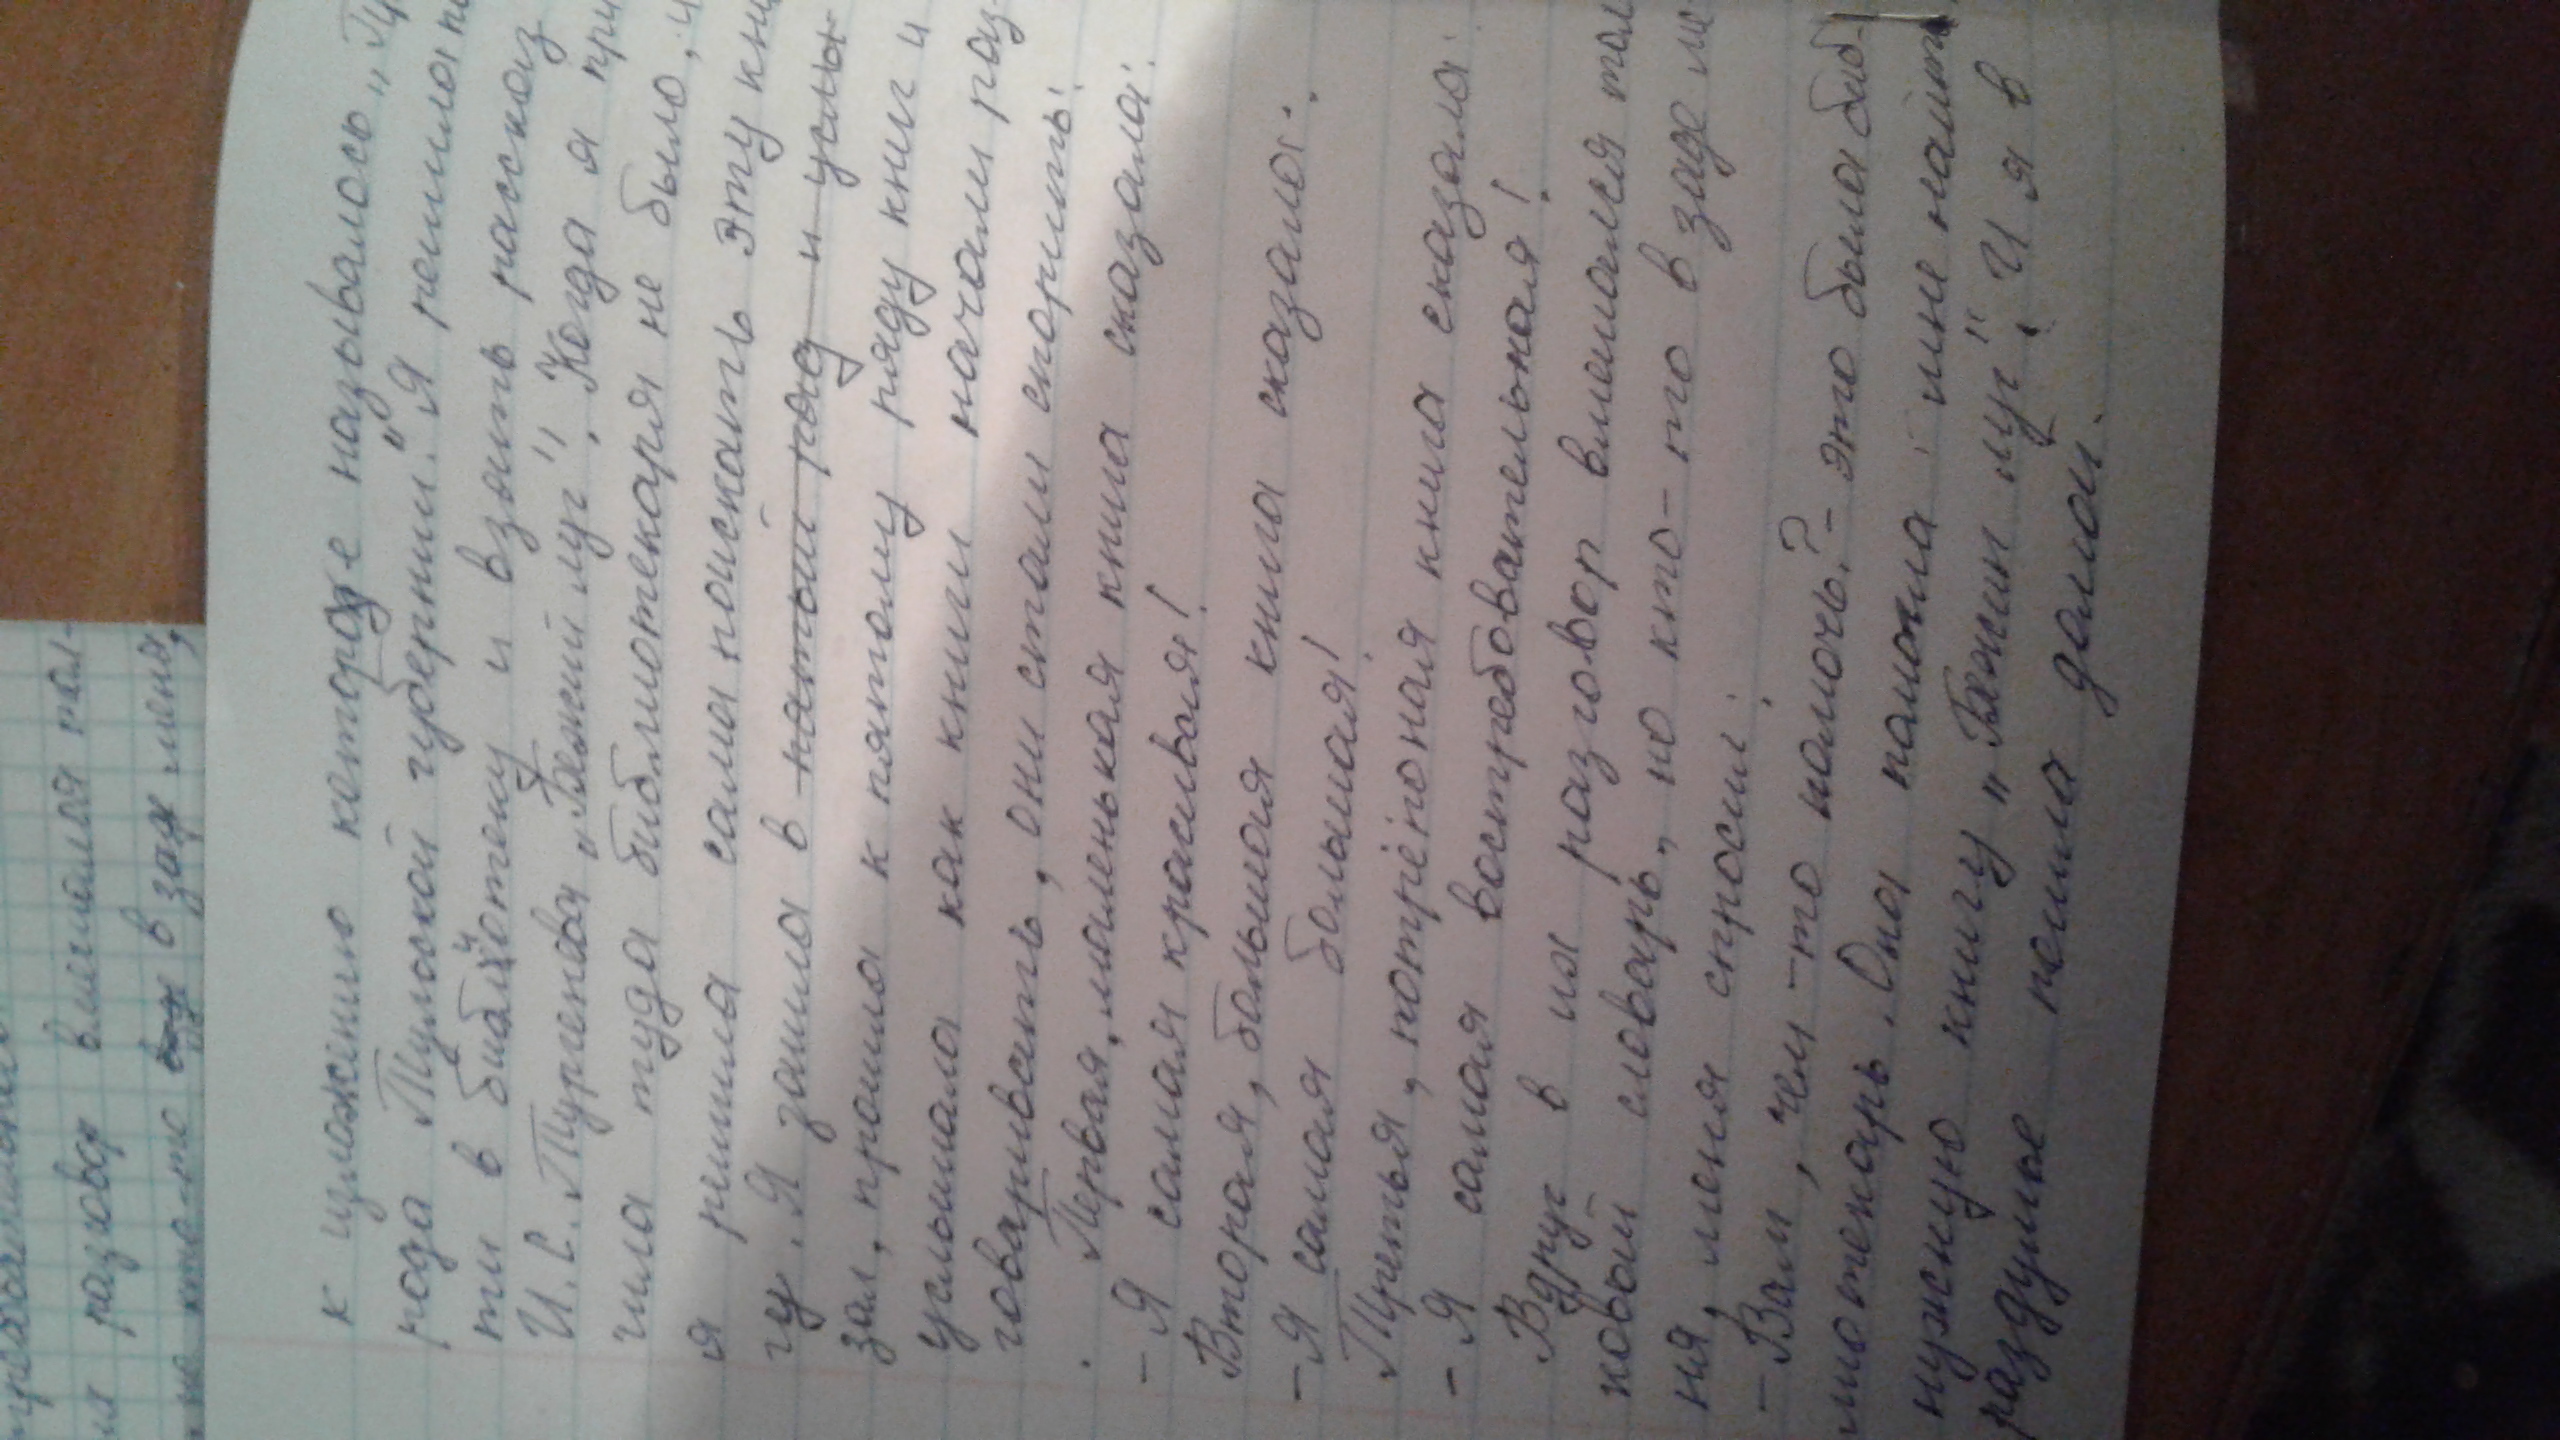 ия разговор вмешался тол-
но кто-то в заде меня,
к изложению которое называлось „Пр
рода Тульской губернии." Я решила по
ти в библиотеку и взять рассказ
И.С. Тургенева „Бежий луг". Когда я при
чила туда библиотекаря не было, и
я решила сама поискать эту кни
гу. Я зашла в пятый ряд и услы-
зал, прошла к пятому ряду книг и
услышала как книги начали раз-
говаривать, они стали спорить:
Первая, маленькая книга сказала:
- Я самая красивая!
Вторая, большая книга сказала:
- Я самая большая!
Третья, потрёпоная книга сказала:
- Я самая востребовательная!
Вдруг в их разговор вмешался тол
ковый словарь, но кто-то в заде ме-
ня, меня спросил:
- Вам, чем-то помочь? - это была биб-
лиотекарь. Она помогла мне найти
нужную книгу „Бежин луг". И я в
раздумье пошла домой.